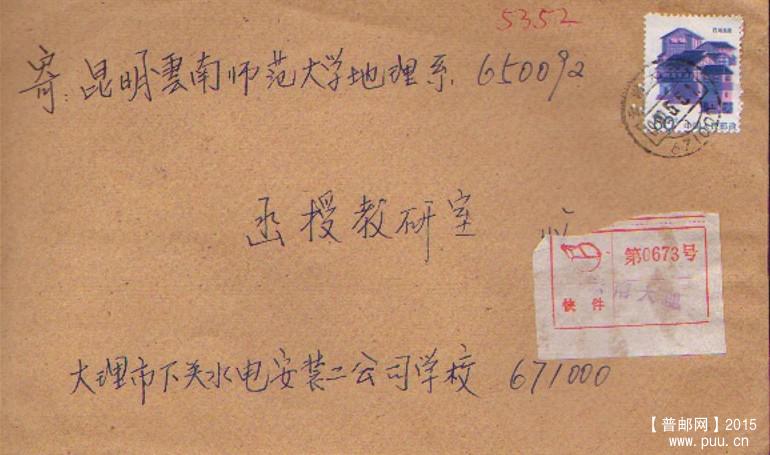 5352
寄：昆明雲南师范大学地理系. 650092
函授教研室
第0673号
快件
大理市下关水电安装二公司学校 671000
【普邮网】2015
www.puu.cn